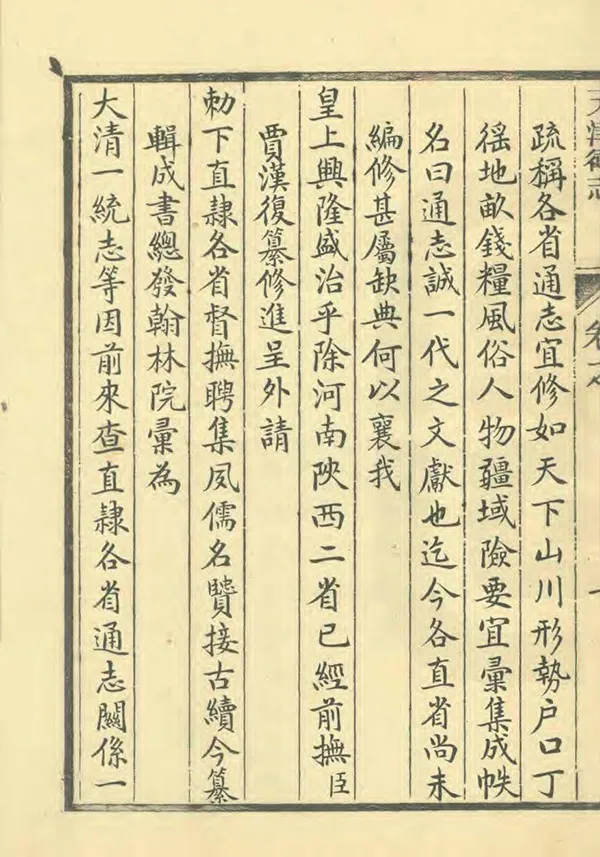 天津衛志
卷之
疏稱各省通志宜修如天下山川形勢户口丁
徭地畝錢糧風俗人物疆域險要宜彙集成帙
名曰通志誠一代之文獻也迄今各直省尚未
編修甚屬缺典何以襄我
皇上興隆盛治乎除河南陝西二省已經前撫臣
賈漢復纂修進呈外請
勅下直隷各省督撫聘集夙儒名贒接古續今纂
輯成書總發翰林院彙為
大清一統志等因前來查直隷各省通志闗係一